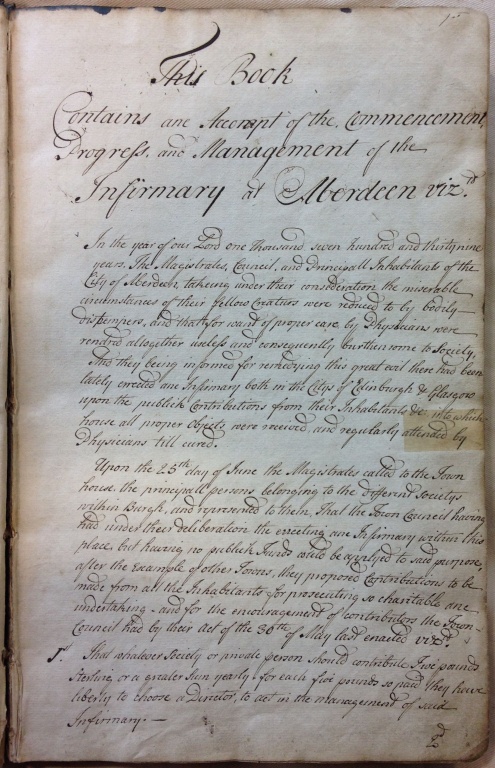 1
This Book
Contains ane Accompt of the Commencement,
Progress, and Management of the
Infirmary at Aberdeen vizt.
In the year of our Lord one thousand seven hundred and thirty nine
years, The Magistrates, Council, and Principall Inhabitants of the
City of Aberdeen, takeing under their consideration the miserable
circumstances of their fellow Creaturs were reduced to by bodily
distempers, and that for want of proper care by Physicians were
rendred altogether useless and consequently burthensome to Society,
And they being informed for remedying this great evil there had been
lately erected ane Infirmary both in the Citys of Edinburgh & Glasgow
upon the publick Contributions from their Inhabitants &c into which
house all proper objects were received, and regularly attended by
Physicians till cured.
Upon the 25th day of June the Magistrates called to the Town
house, the principall persons belonging to the Different Societys
within Burgh, and represented to them, That the Town Council having
had under their deliberation the erecting ane Infirmary within this
place, but having no publick funds could be applyed to said purpose,
after the Example of other Towns, they proposed Contributions to be
made from all the Inhabitants for prosecuting so charitable ane
undertaking - and for the encouragement of contributors the Town
Council had by their Act of the 30th of May last enacted vizt.
1st That whatever Society or private person should contribute Five pounds
Sterline, or a greater Sum yearly, for each five pounds so paid, they have
liberty to choose a Director, to act in the management of said
Infirmary. —
2d